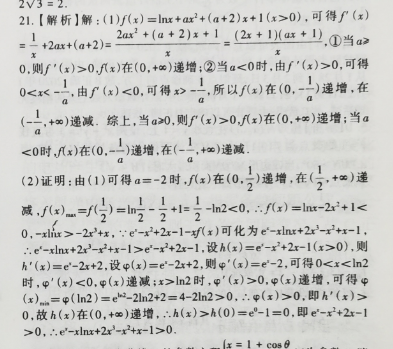 2√3 = 2.
21.【解析】解:(1)f(x)=lnx+ax²+(a+2)x+1(x>0),可得f′(x)
=1/x+2ax+(a+2)=(2ax²+(a+2)x+1)/x=((2x+1)(ax+1))/x,①当a≥
0,则f′(x)>0,f(x)在(0,+∞)递增;②当a<0时,由f′(x)>0,可得
0<x<-1/a,由f′(x)<0,可得x>-1/a,所以f(x)在(0,-1/a)递增,在
(-1/a,+∞)递减. 综上,当a≥0,则f′(x)>0,f(x)在(0,+∞)递增;当a
<0时,f(x)在(0,-1/a)递增,在(-1/a,+∞)递减.
(2)证明:由(1)可得a=-2时,f(x)在(0,1/2)递增,在(1/2,+∞)递
减,f(x)max=f(1/2)=ln1/2-1/2+1=1/2-ln2<0,∴f(x)=lnx-2x²+1<
0,-xlnx>-2x³+x,∵eˣ-x²+2x-1-xf(x)可化为eˣ-xlnx+2x³-x²+x-1,
∴eˣ-xlnx+2x³-x²+x-1>eˣ-x²+2x-1,设h(x)=eˣ-x²+2x-1(x>0),则
h′(x)=eˣ-2x+2,设φ(x)=eˣ-2x+2,则φ′(x)=eˣ-2,可得0<x<ln2
时,φ′(x)<0,φ(x)递减;x>ln2时,φ′(x)>0,φ(x)递增,可得φ
(x)min=φ(ln2)=eˡⁿ²-2ln2+2=4-2ln2>0,∴φ(x)>0,即h′(x)>
0,故h(x)在(0,+∞)递增,∴h(x)>h(0)=e⁰-1=0,即eˣ-x²+2x-1
>0,∴eˣ-xlnx+2x³-x²+x-1>0.
{x=1+cosθ